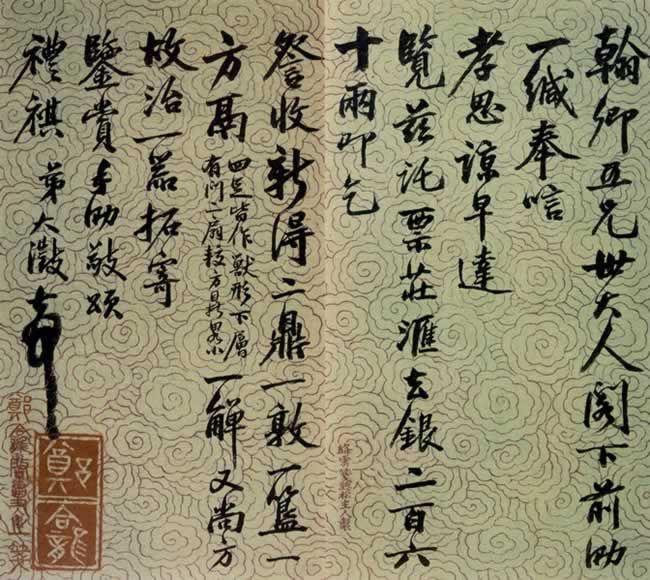 翰卿五兄世大人閣下前泐
一緘奉唁
孝思諒早達
覽茲託票莊滙去銀二百六
十兩即乞
詧收新得二鼎一敦一簠一
方鬲四足皆作獸形下層有門一扇較方鼎畧小一觶又尚方
故治一器拓寄
鑒賞手泐敬頌
禮祺 弟大澂